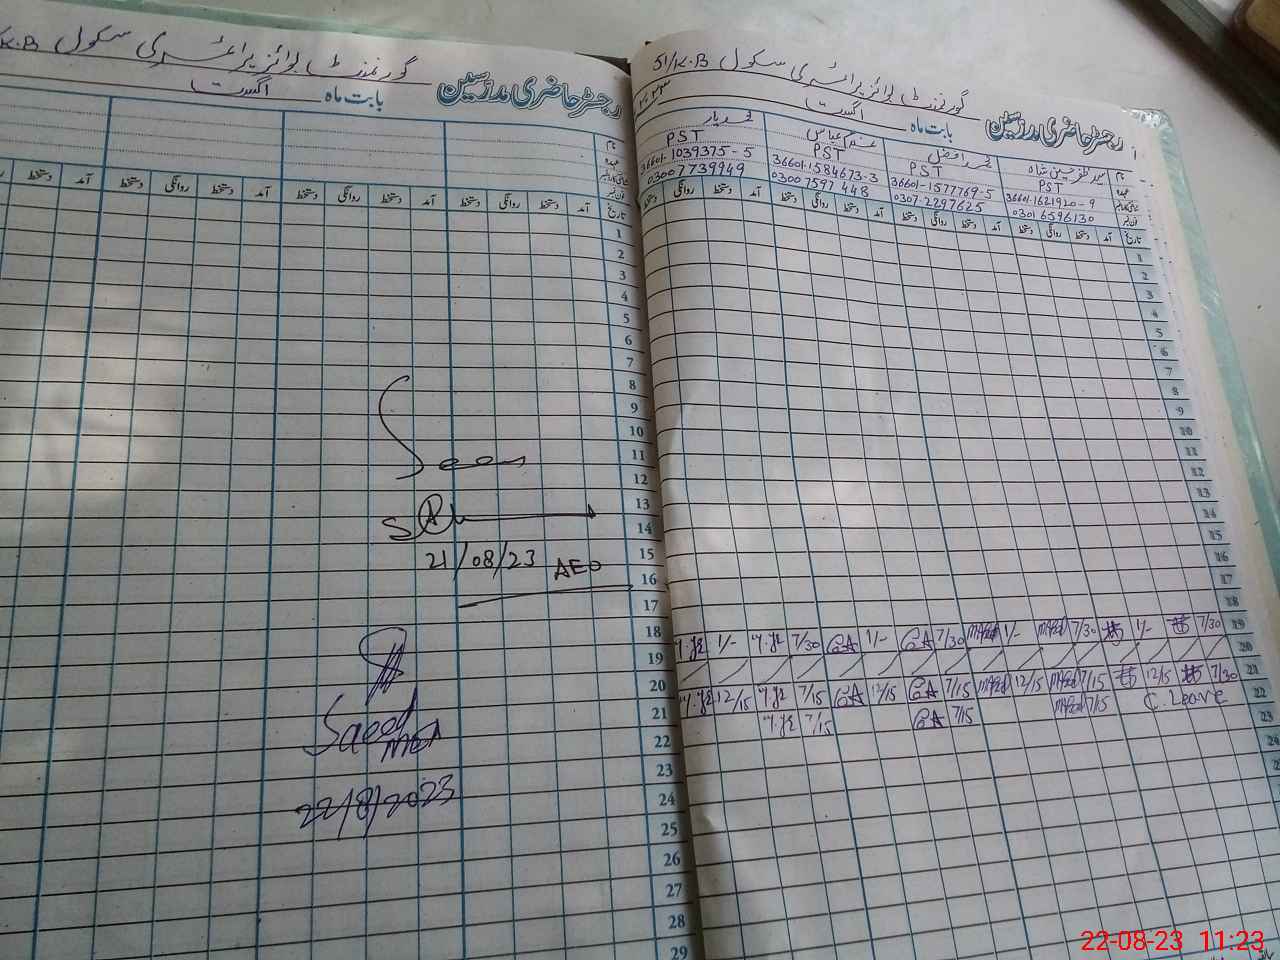 گورنمنٹ بوائز پرائمری سکول 51/K.B
رجسٹر حاضری مدرسین بابت ماہ اگست
نام سید ظفر حسین شاہ محمد افضل غلام عباس محمد یار
عہدہ PST PST PST PST
36601-1621920-9 36601-1577769-5 36601-1584673-3 36601-1039375-5
فون نمبر 03016596130 0307-2297625 0300 7597 448 03007739949
تاریخ آمد دستخط روانگی دستخط آمد دستخط روانگی دستخط آمد دستخط روانگی دستخط آمد دستخط روانگی دستخط
1
2
3
4
5
6
7
8
9
10
11
12
13
14
15
16
17
18
19 7/30 1/- 7/30 1/- 7/30 1/- 7/30 1/-
20
21 7/30 12/15 7/15 12/15 7/15 12/15 7/15 12/15
22 C. Leave 7/15 7/15 7/15
23
24
گورنمنٹ بوائز پرائمری سکول K.B
رجسٹر حاضری مدرسین بابت ماہ اگست
نام
عہدہ
فون نمبر
تاریخ آمد دستخط روانگی دستخط آمد دستخط روانگی دستخط آمد دستخط روانگی دستخط آمد دستخط
1
2
3
4
5
6
7
8
9
10
11
12
13
14
15
16
17
18
19
20
21
22
23
24
25
26
27
28
29
Seen
21/08/23 AEO
Saeed
MEA
22/8/2023
22-08-23 11:23